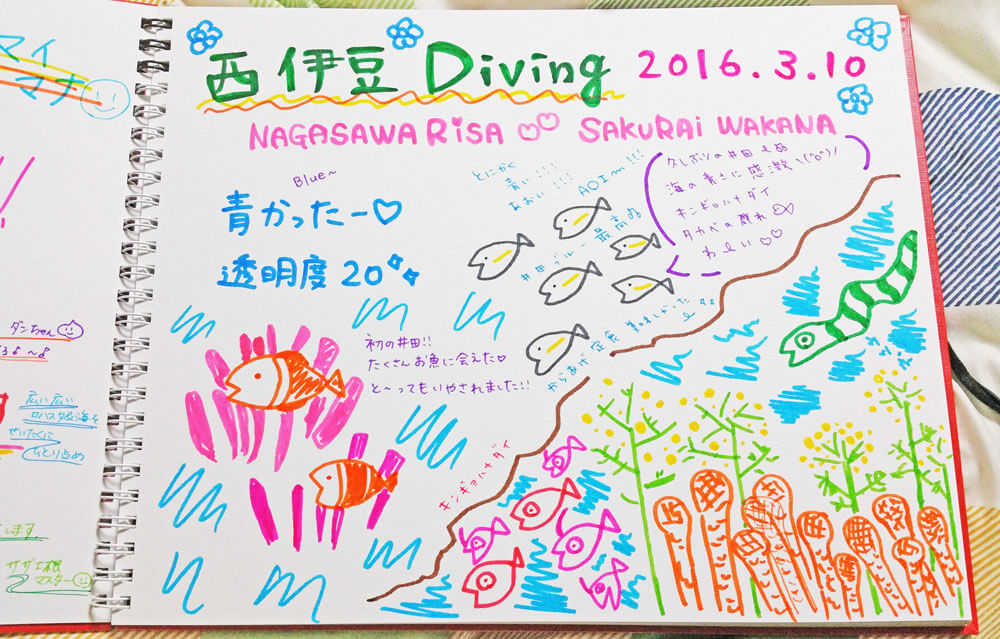 マイ
マナ
ダンちゃん
広い広い
ロバスタの海を
ぜいたくに
ひとり占め
します。
サザエ根
マスター
西伊豆 Diving 2016.3.10
NAGASAWA RiSA SAKURAi WAKANA
Blue~
青かったー♡
透明度 20
とにかく
青い!!!
あおい!!!
AOIー!!!
井田ブルー 最高ぬ
久しぶりの井田ぬ
海の青さに感激\(^o^)/
キンギョハナダイ
タカベの群れ
わーい♡♡
初の井田!!
たくさんお魚に会えた♡
と〜ってもいやされました!!
からあげ定食 美味しかった
キンギョハナダイ